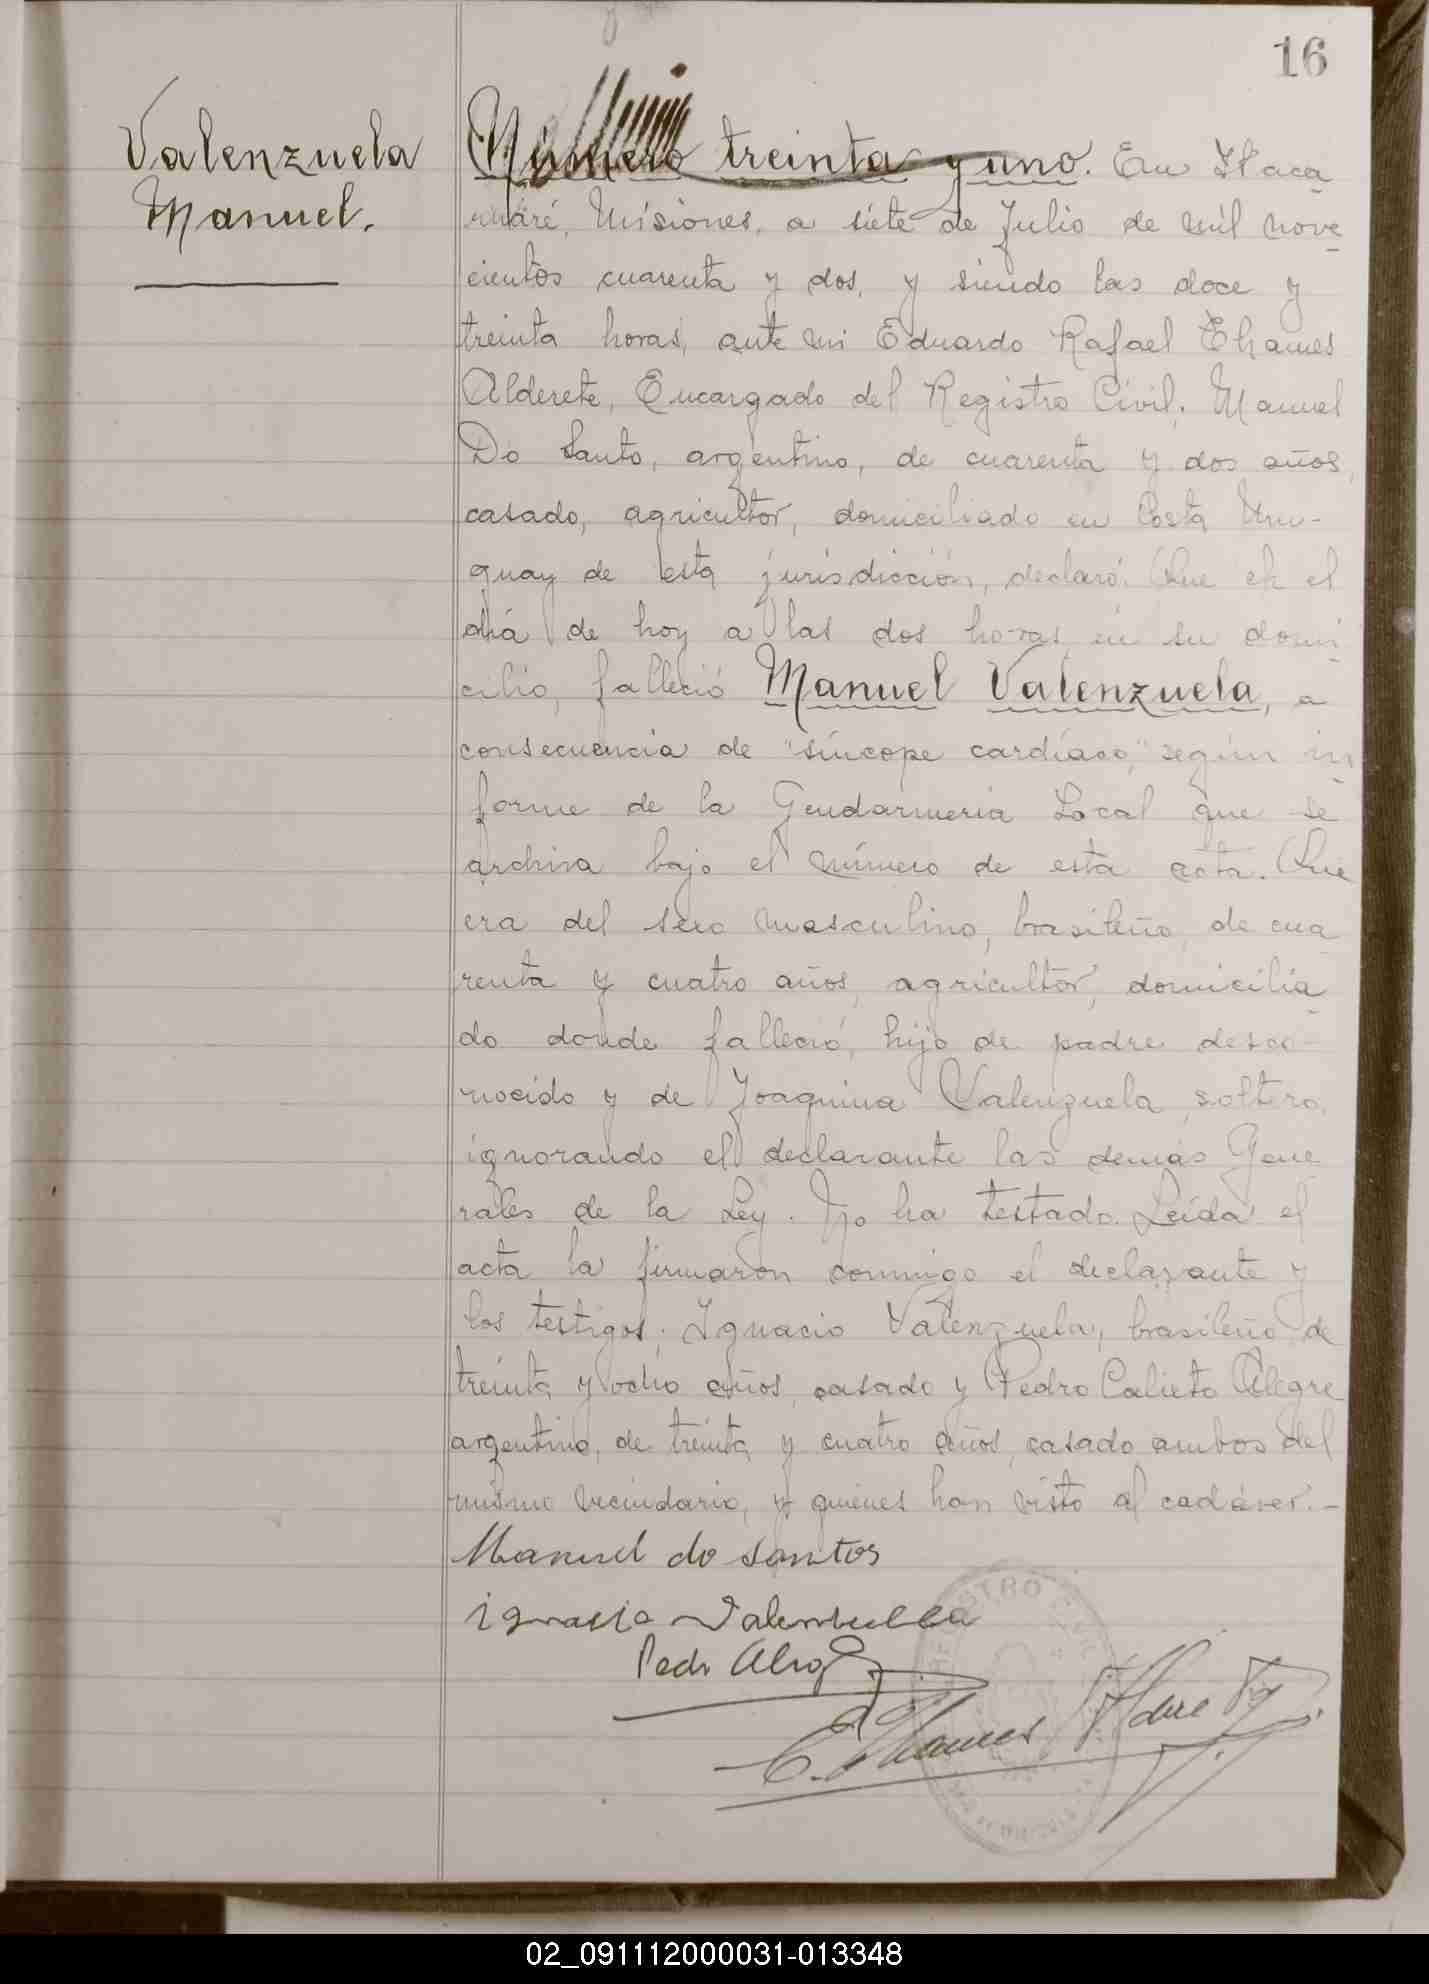 16
Valenzuela
Manuel.
Número treinta y uno. En Itaca
ruaré, Misiones, a siete de Julio de mil nove
cientos cuarenta y dos, y siendo las doce y
treinta horas, ante mi Eduardo Rafael Thames
Alderete, Encargado del Registro Civil, Manuel
Do Santo, argentino, de cuarenta y dos años,
casado, agricultor, domiciliado en Costa Uru-
guay de esta jurisdicción, declaró: Que en el
día de hoy a las dos horas en su domi
cilio, falleció Manuel Valenzuela, a
consecuencia de "síncope cardíaco," según in
forme de la Gendarmeria Local que se
archiva bajo el número de esta acta. Que
era del sexo masculino, brasileño, de cua
renta y cuatro años, agricultor, domicilia
do donde falleció, hijo de padre desco-
nocido y de Joaquina Valenzuela, soltero,
ignorando el declarante las demás Gene
rales de la Ley. No ha testado. Leída el
acta la firmaron conmigo el declarante y
los testigos: Ignacio Valenzuela, brasileño, de
treinta y ocho años, casado y Pedro Calixto Alegre
argentino, de treinta y cuatro años, casado, ambos del
mismo vecindario, y quienes han visto al cadáver.-
Manuel do santos
ignasio Valensuela
Pedro Alegre
E. Thames Alderete
02_091112000031-013348